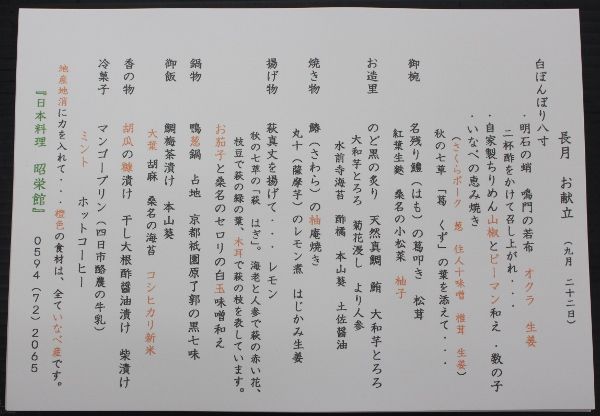 長月　お献立　（九月　二十二日）
白ぼんぼり八寸
・明石の蛸　鳴門の若布　オクラ　生姜
二杯酢をかけて召し上がれ・・・
・自家製ちりめん山椒とピーマン和え　・数の子
・いなべの恵み焼き
（さくらポーク　葱　住人十味噌　椎茸　生姜）
秋の七草　「葛　くず」の葉を添えて・・・
御椀　名残り鱧（はも）の葛叩き　松茸
紅葉生麩　桑名の小松菜　柚子
お造里　のど黒の炙り　天然真鯛　鮪　大和芋とろろ
大和芋とろろ　菊花浸し　より人参
水前寺海苔　酢橘　本山葵　土佐醤油
焼き物　鰆（さわら）の柚庵焼き
丸十（薩摩芋）のレモン煮　はじかみ生姜
揚げ物　萩真丈を揚げて・・・レモン
秋の七草の「萩　はぎ」。海老と人参で萩の赤い花、
枝豆で萩の緑の葉、木耳で萩の枝を表しています。
お茄子と桑名のセロリの白玉味噌和え
鍋物　鴨葱鍋　占地　京都祇園原了郭の黒七味
御飯　鯛梅茶漬け　本山葵
大葉　胡麻　桑名の海苔　コシヒカリ新米
香の物　胡瓜の糠漬け　干し大根酢醤油漬け　柴漬け
冷菓子　マンゴープリン（四日市酪農の牛乳）
ミント　ホットコーヒー
地産地消に力を入れて・・・橙色の食材は、全ていなべ産です。
『日本料理　昭栄館』　０５９４（７２）２０６５